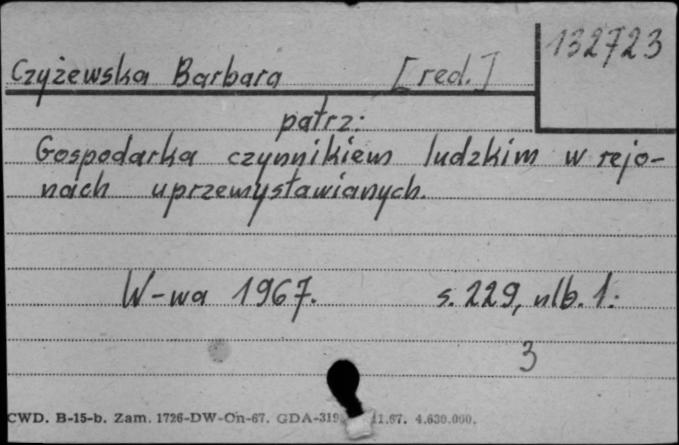 132723
Czyżewska Barbara [red.]
patrz:
Gospodarka czynnikiem ludzkim w rejo-
nach uprzemysławianych.
W-wa 1967. s. 229, nlb. 1.
3
CWD. B-15-b. Zam. 1726-DW-On-67. GDA-319 11.67. 4.630.000.